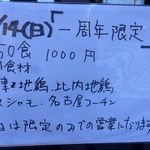 /14(日)「一周年限定」
50食 1000円
食材
津軽地鶏、比内地鶏
スシャモ、名古屋コーチン
日は限定のみでの営業になります